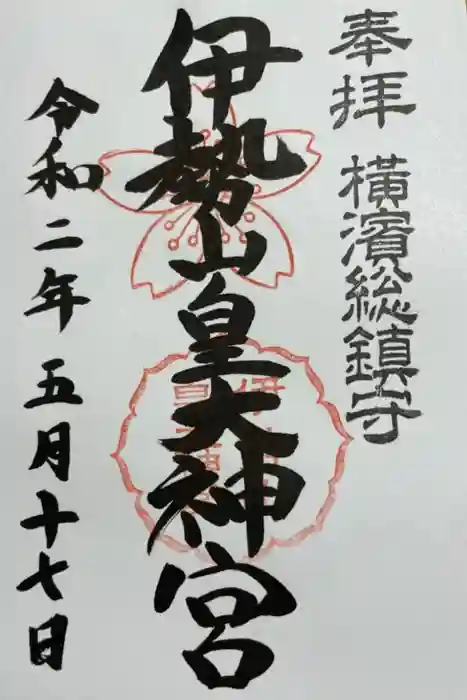 奉拝 横濱総鎮守
伊勢山皇大神宮
令和二年五月十七日